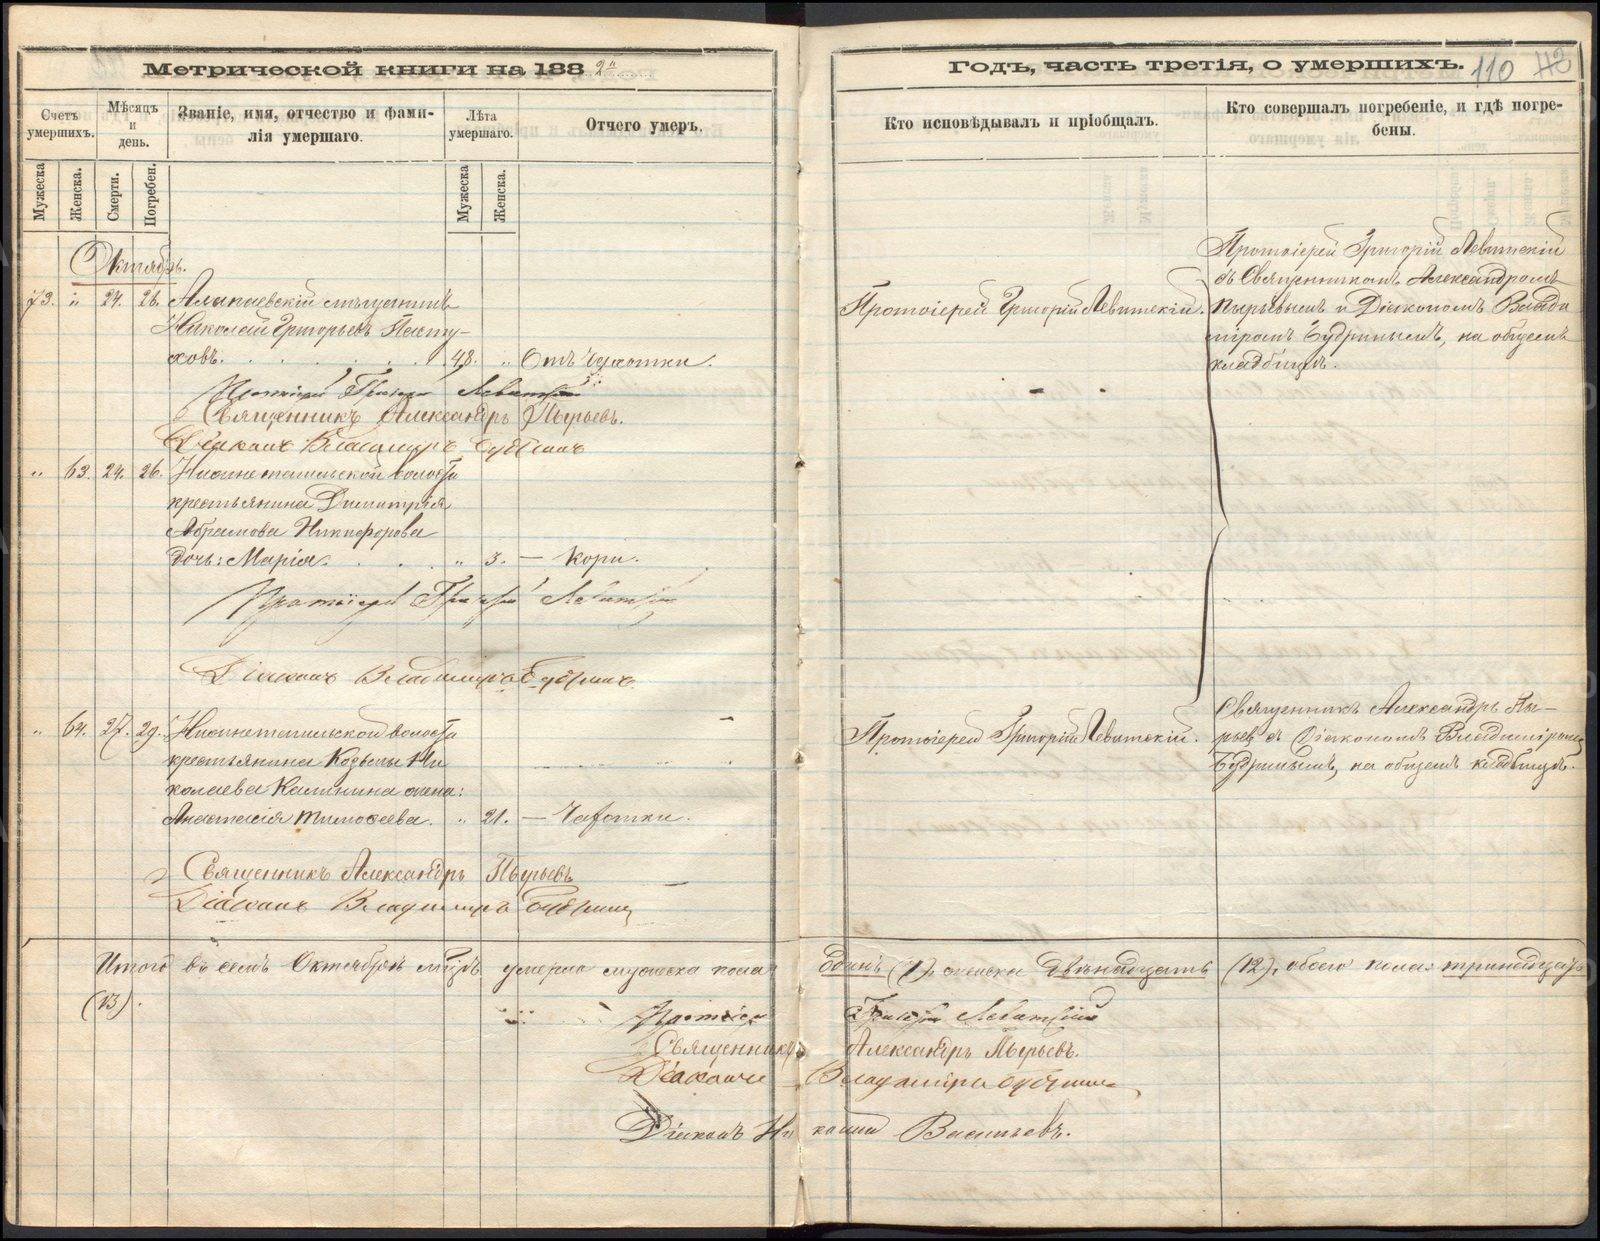 Метрической книги на 188 2й
Счетъ умершихъ.
Мѣсяцъ и день.
Званіе, имя, отчество и фами-
лія умершаго.
Лѣта умершаго.
Отчего умеръ.
Мужеска
Женска.
Смерти.
Погребен.
Мужеска
Женска.
Октябрь.
73. " 24. 26. Алапаевскій мѣщанинъ
Николай Григорьевъ Пасту-
ховъ. 48. " Отъ чахотки.
Протоіерей Григорій Левитскій
Священникъ Александръ Пырьевъ.
Діаконъ Владиміръ Будринъ
" 63. 24. 26. Нижнетагильской волости
крестьянина Димитрія
Абрамова Никифорова
дочь: Марія. " 3. — Кори.
Протоіерей Григорій Левитскій
Діаконъ Владиміръ Будринъ
" 64. 27. 29. Нижнетагильской волости
крестьянина Козьмы Ни
колаева Калинина жена:
Анастасія Тимоѳеева. " 21. — Чахотки.
Священникъ Александръ Пырьевъ
Діаконъ Владиміръ Будринъ
Годъ, часть третія, о умершихъ. 110
Кто исповѣдывалъ и пріобщалъ.
Кто совершалъ погребеніе, и гдѣ погре-
бены.
Протоіерей Григорій Левитскій.
Протоіерей Григорій Левитскій
съ Священникомъ Александромъ
Пырьевымъ и Діакономъ Влади
міромъ Будринымъ, на общемъ
кладбищѣ.
Протоіерей Григорій Левитскій.
Священникъ Александръ Пы-
рьев съ Діакономъ Владиміромъ
Будринымъ, на общемъ кладбищѣ.
Итого въ семъ Октябрѣ мѣсяцѣ умерло мужеска пола одинъ (1), женска двѣнадцать (12), обоего пола: тринадцать
(13).
Протоіерей Григорій Левитскій
Священникъ Александръ Пырьевъ.
Діаконъ Владиміръ Будринъ
Діаконъ Васильевъ.